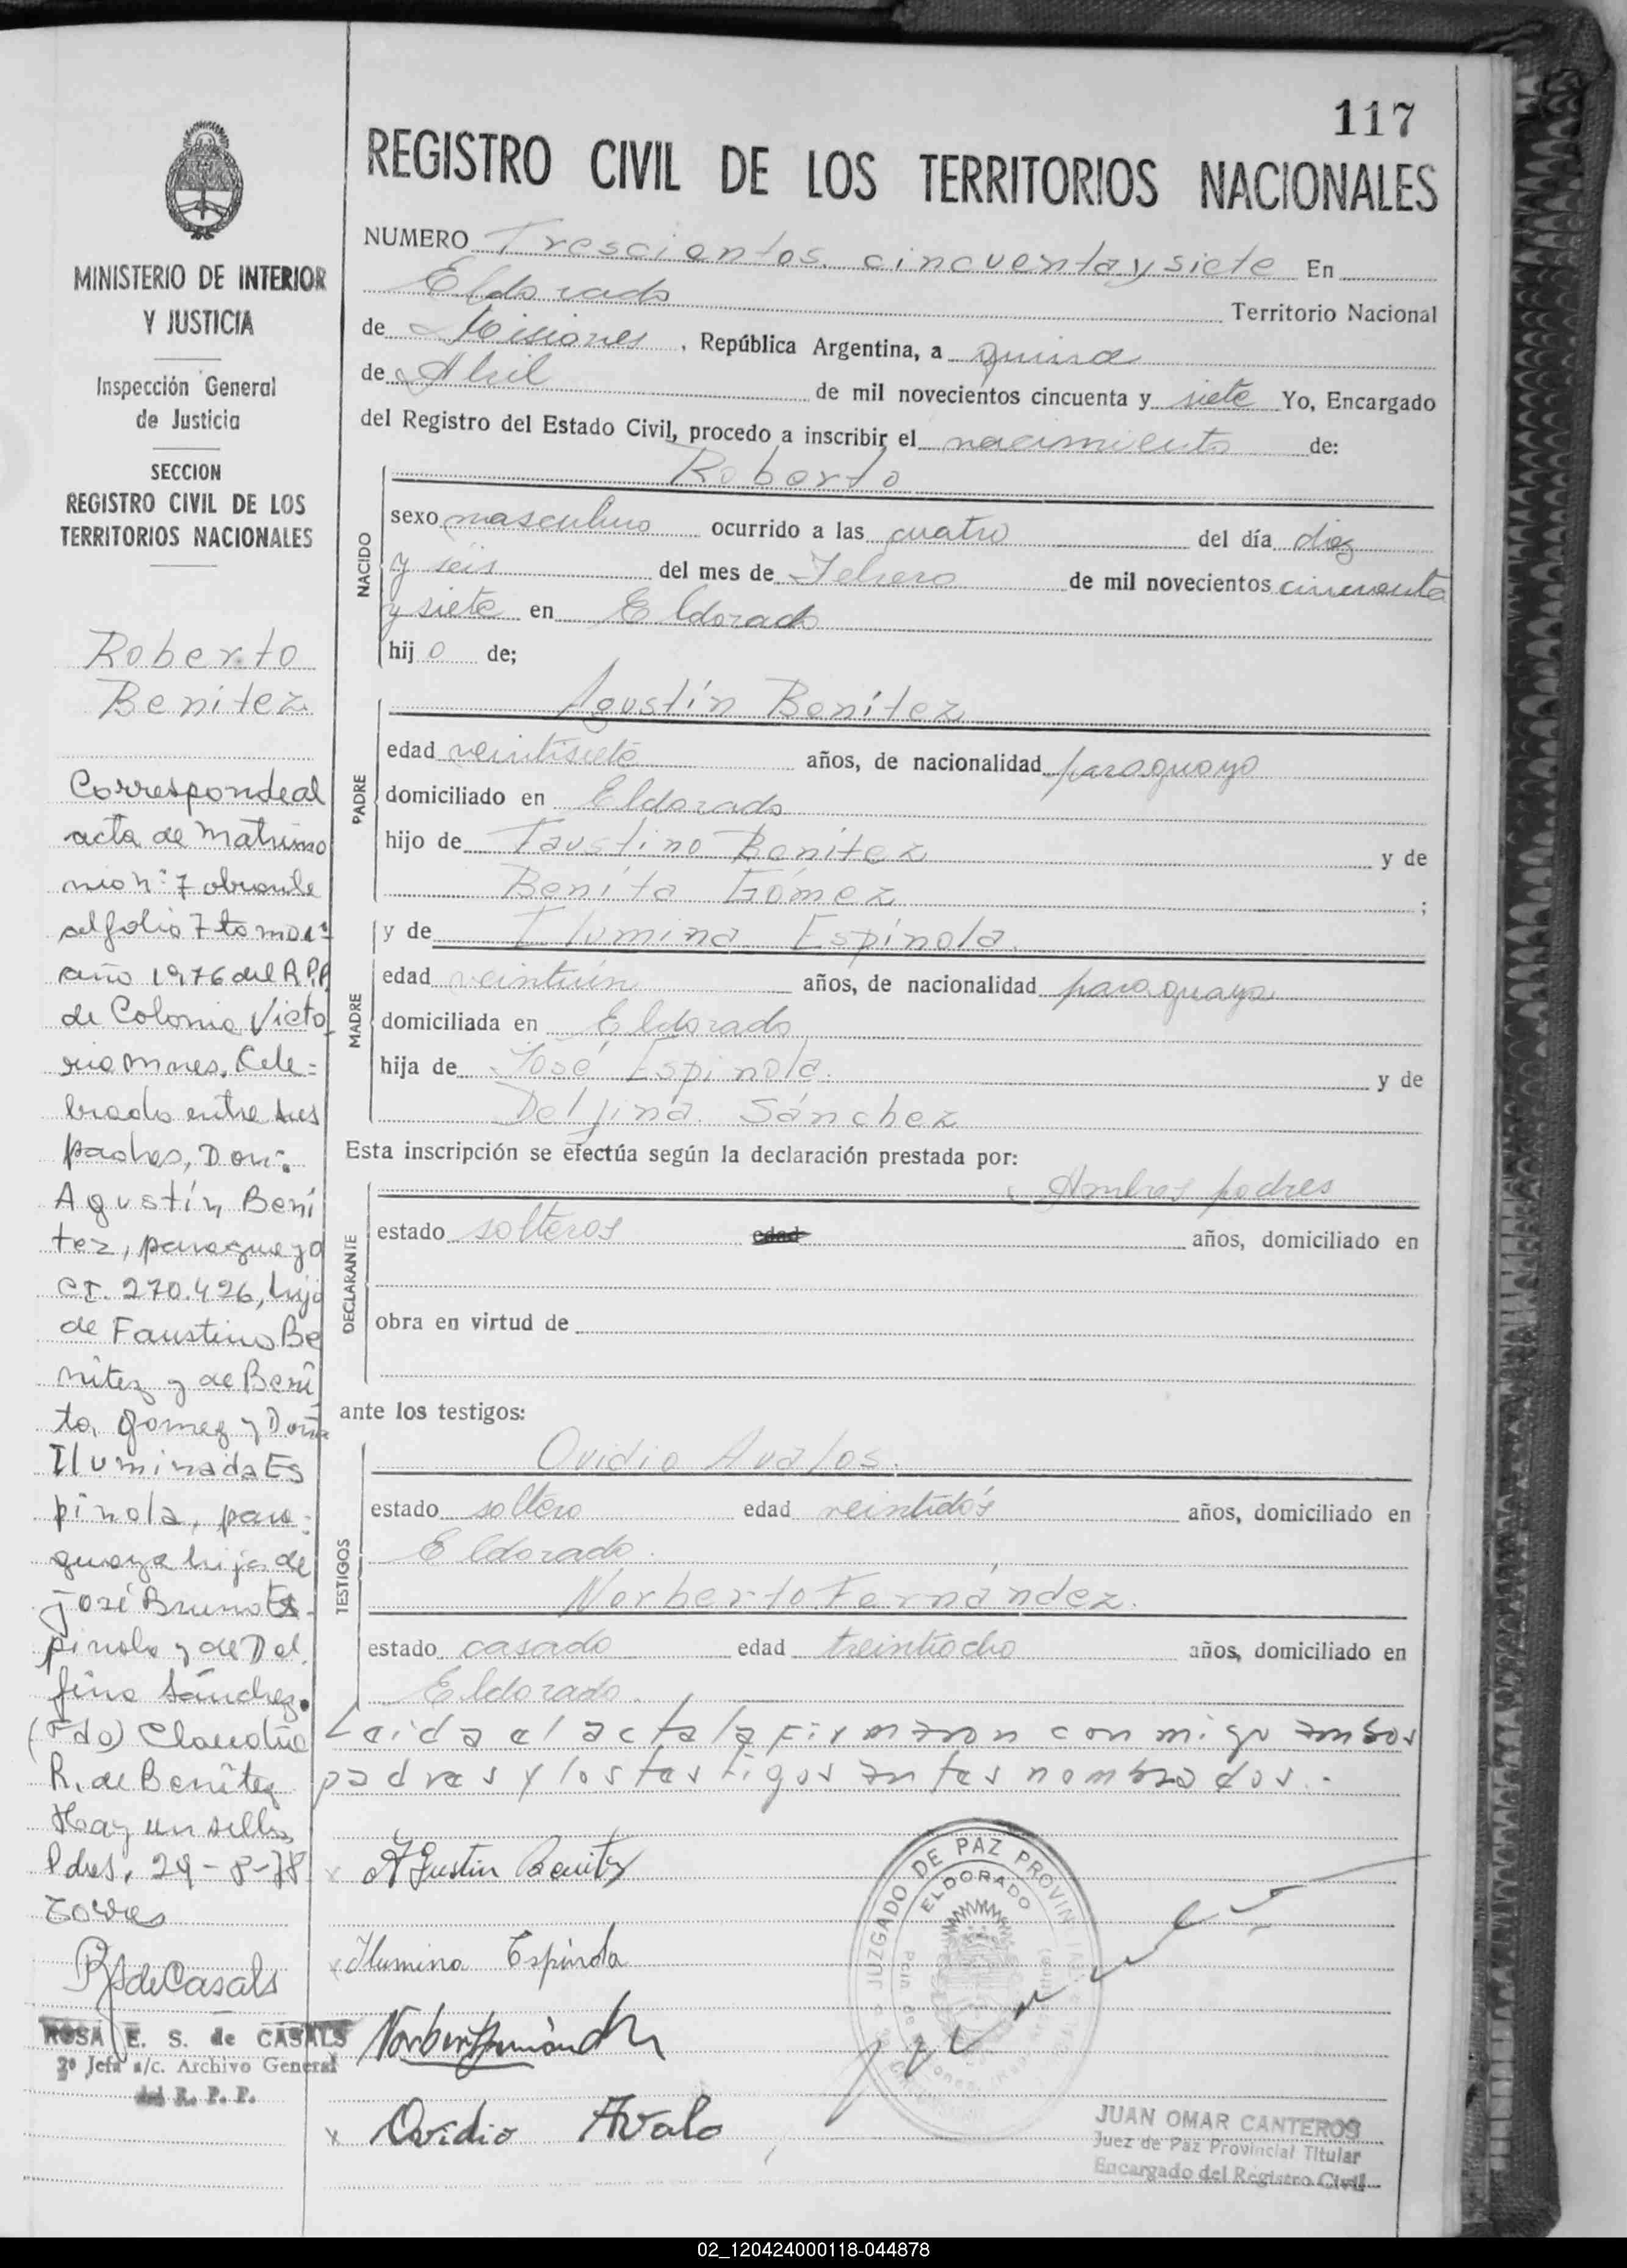 117
REGISTRO CIVIL DE LOS TERRITORIOS NACIONALES
MINISTERIO DE INTERIOR
Y JUSTICIA
Inspección General
de Justicia
SECCION
REGISTRO CIVIL DE LOS
TERRITORIOS NACIONALES
Roberto
Benitez
Correspondeal
acta de Matrimo
nio n° 7 obrante
al folio 7 tomo 1°
año 1976 del R.P.P.
de Colonia Victo
ria Mnes. Cele=
brado entre sus
padres, Don:
Agustín Beni
tez, paraguayo
CI. 270.426, hijo
de Faustino Be
nitez y de Beni
ta Gomez y Doña
Iluminada Es
pinola, para=
guaya hija de
José Bruno Es-
pinola y de Del
fina Sánchez.
(Fdo) Claudia
R. de Benitez
Hay un sello
Pdas, 29-8-78
Torres
RSdeCasals
ROSA E. S. de CASALS
2º Jefa a/c. Archivo General
del R. P. P.
NUMERO Trescientos cincuenta y siete En
Eldorado Territorio Nacional
de Misiones, República Argentina, a quince
de Abril de mil novecientos cincuenta y siete Yo, Encargado
del Registro del Estado Civil, procedo a inscribir el nacimiento de:
NACIDO
Roberto
sexo masculino ocurrido a las cuatro del día diez
y seis del mes de Febrero de mil novecientos cincuenta
y siete en Eldorado
hijo de;
PADRE
Agustín Benítez
edad veintisiete años, de nacionalidad paraguayo
domiciliado en Eldorado
hijo de Faustino Benítez y de
Benita Gómez;
MADRE
y de Ilumina Espínola
edad veintiún años, de nacionalidad paraguaya
domiciliada en Eldorado
hija de José Espínola y de
Delfina Sánchez
Esta inscripción se efectúa según la declaración prestada por:
DECLARANTE
Ambos padres
estado solteros edad años, domiciliado en
obra en virtud de
ante los testigos:
TESTIGOS
Ovidio Avalos.
estado soltero edad veintidós años, domiciliado en
Eldorado.
Norberto Fernández.
estado casado edad treintiocho años, domiciliado en
Eldorado.
Leida el acta la firmaron conmigo ambos
padres y los testigos antes nombrados.-
x Agustin Benitez
x Ilumina Espinola
x Ovidio Avalo
JUZGADO DE PAZ PROVINCIAL
ELDORADO
JUAN OMAR CANTEROS
Juez de Paz Provincial Titular
Encargado del Registro Civil
02_120424000118-044878